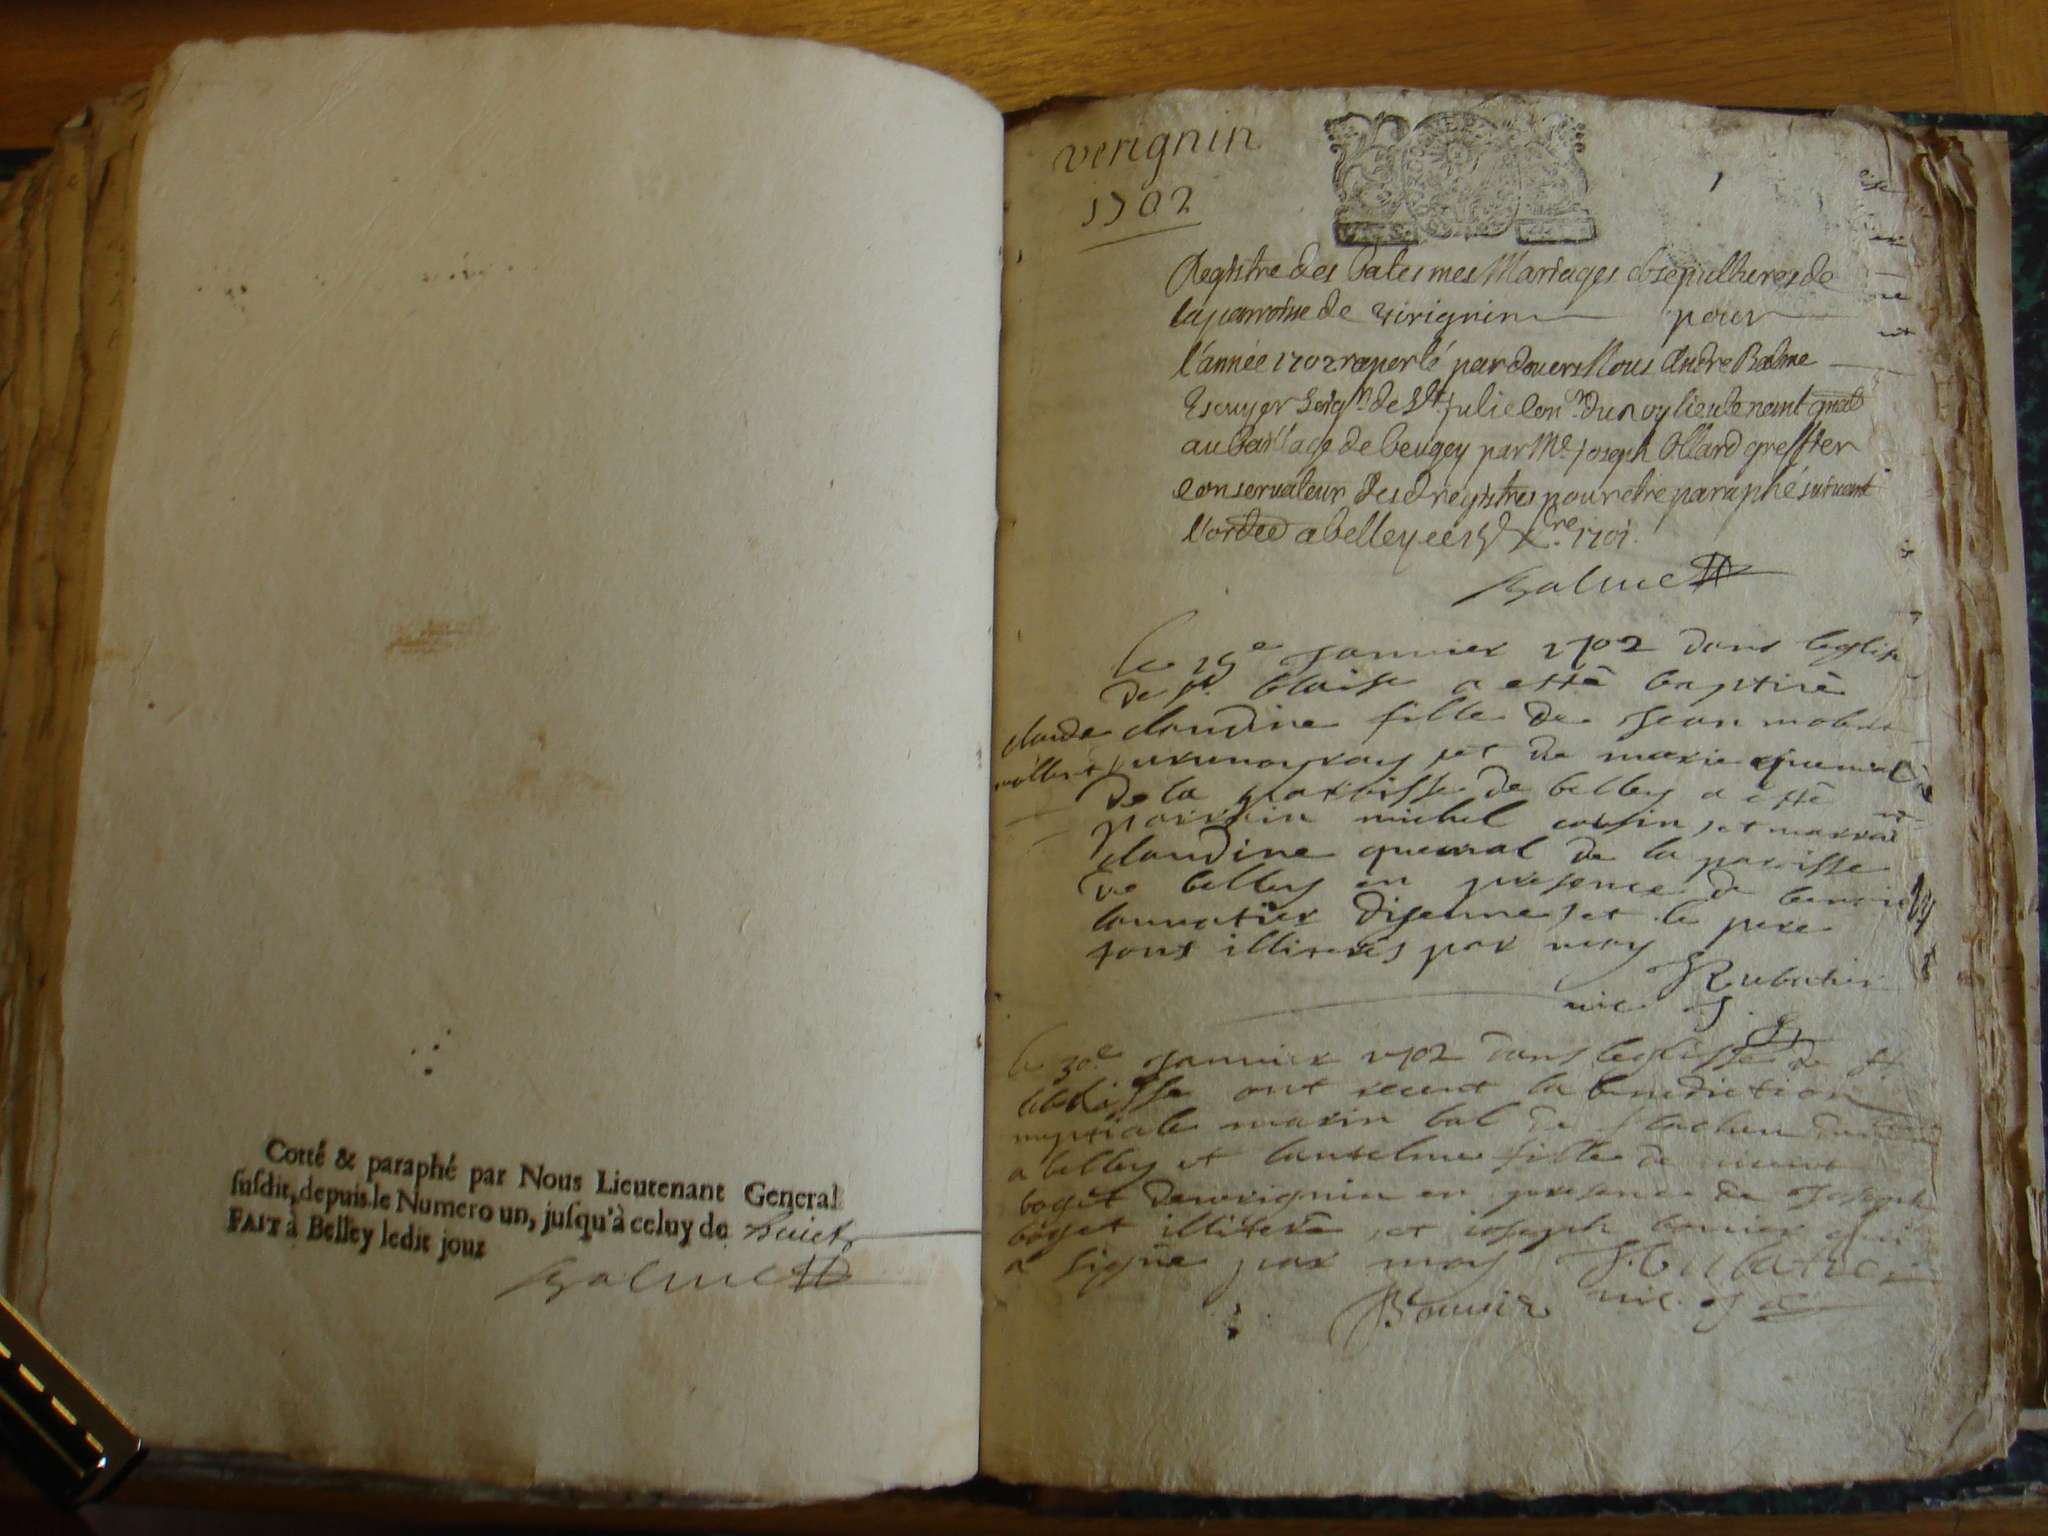 Cotté & paraphé par Nous Lieutenant General
susdit, depuis le Numero un, jusqu'à celuy de huict
FAIT à Belley ledit jour
Balme
verignin
1702
1
Registre des batesmes Mariages et sepultures de
la parroisse de virignin pour
l'année 1702 raporté pardevers Nous Andre Balme
Escuyer Seigr de St Julie Conr du roy lieutenant gnal
au bailliage de beugey par Me Joseph Ollard greffier
conservateur desd registres pour etre paraphé suivant
l'ordce a belley ce 15 Xbre 1701.
Balme
le 25e Janvier 1702 dans leglise
de st blaise a esté baptisé
claudine fille de Jean molert
et de marie quemral
de la parroisse de belley a esté
parrain michel cousin et marrai
claudine quemral de la paroisse
de belley en presence de benoi
et le pere
tous illiterés par moy
Rubatier
vic
claude
mollert
le 30e Janvier 1702 dans leglisse de st
blaisse ont receut la benediction
nuptiale marin bal de
a belley et lantelme fille de
boget de verignin en presence de Joseph
boget illiteré, et ioseph bonier qui
a signé par moy Rubatier
Bouvier vic.